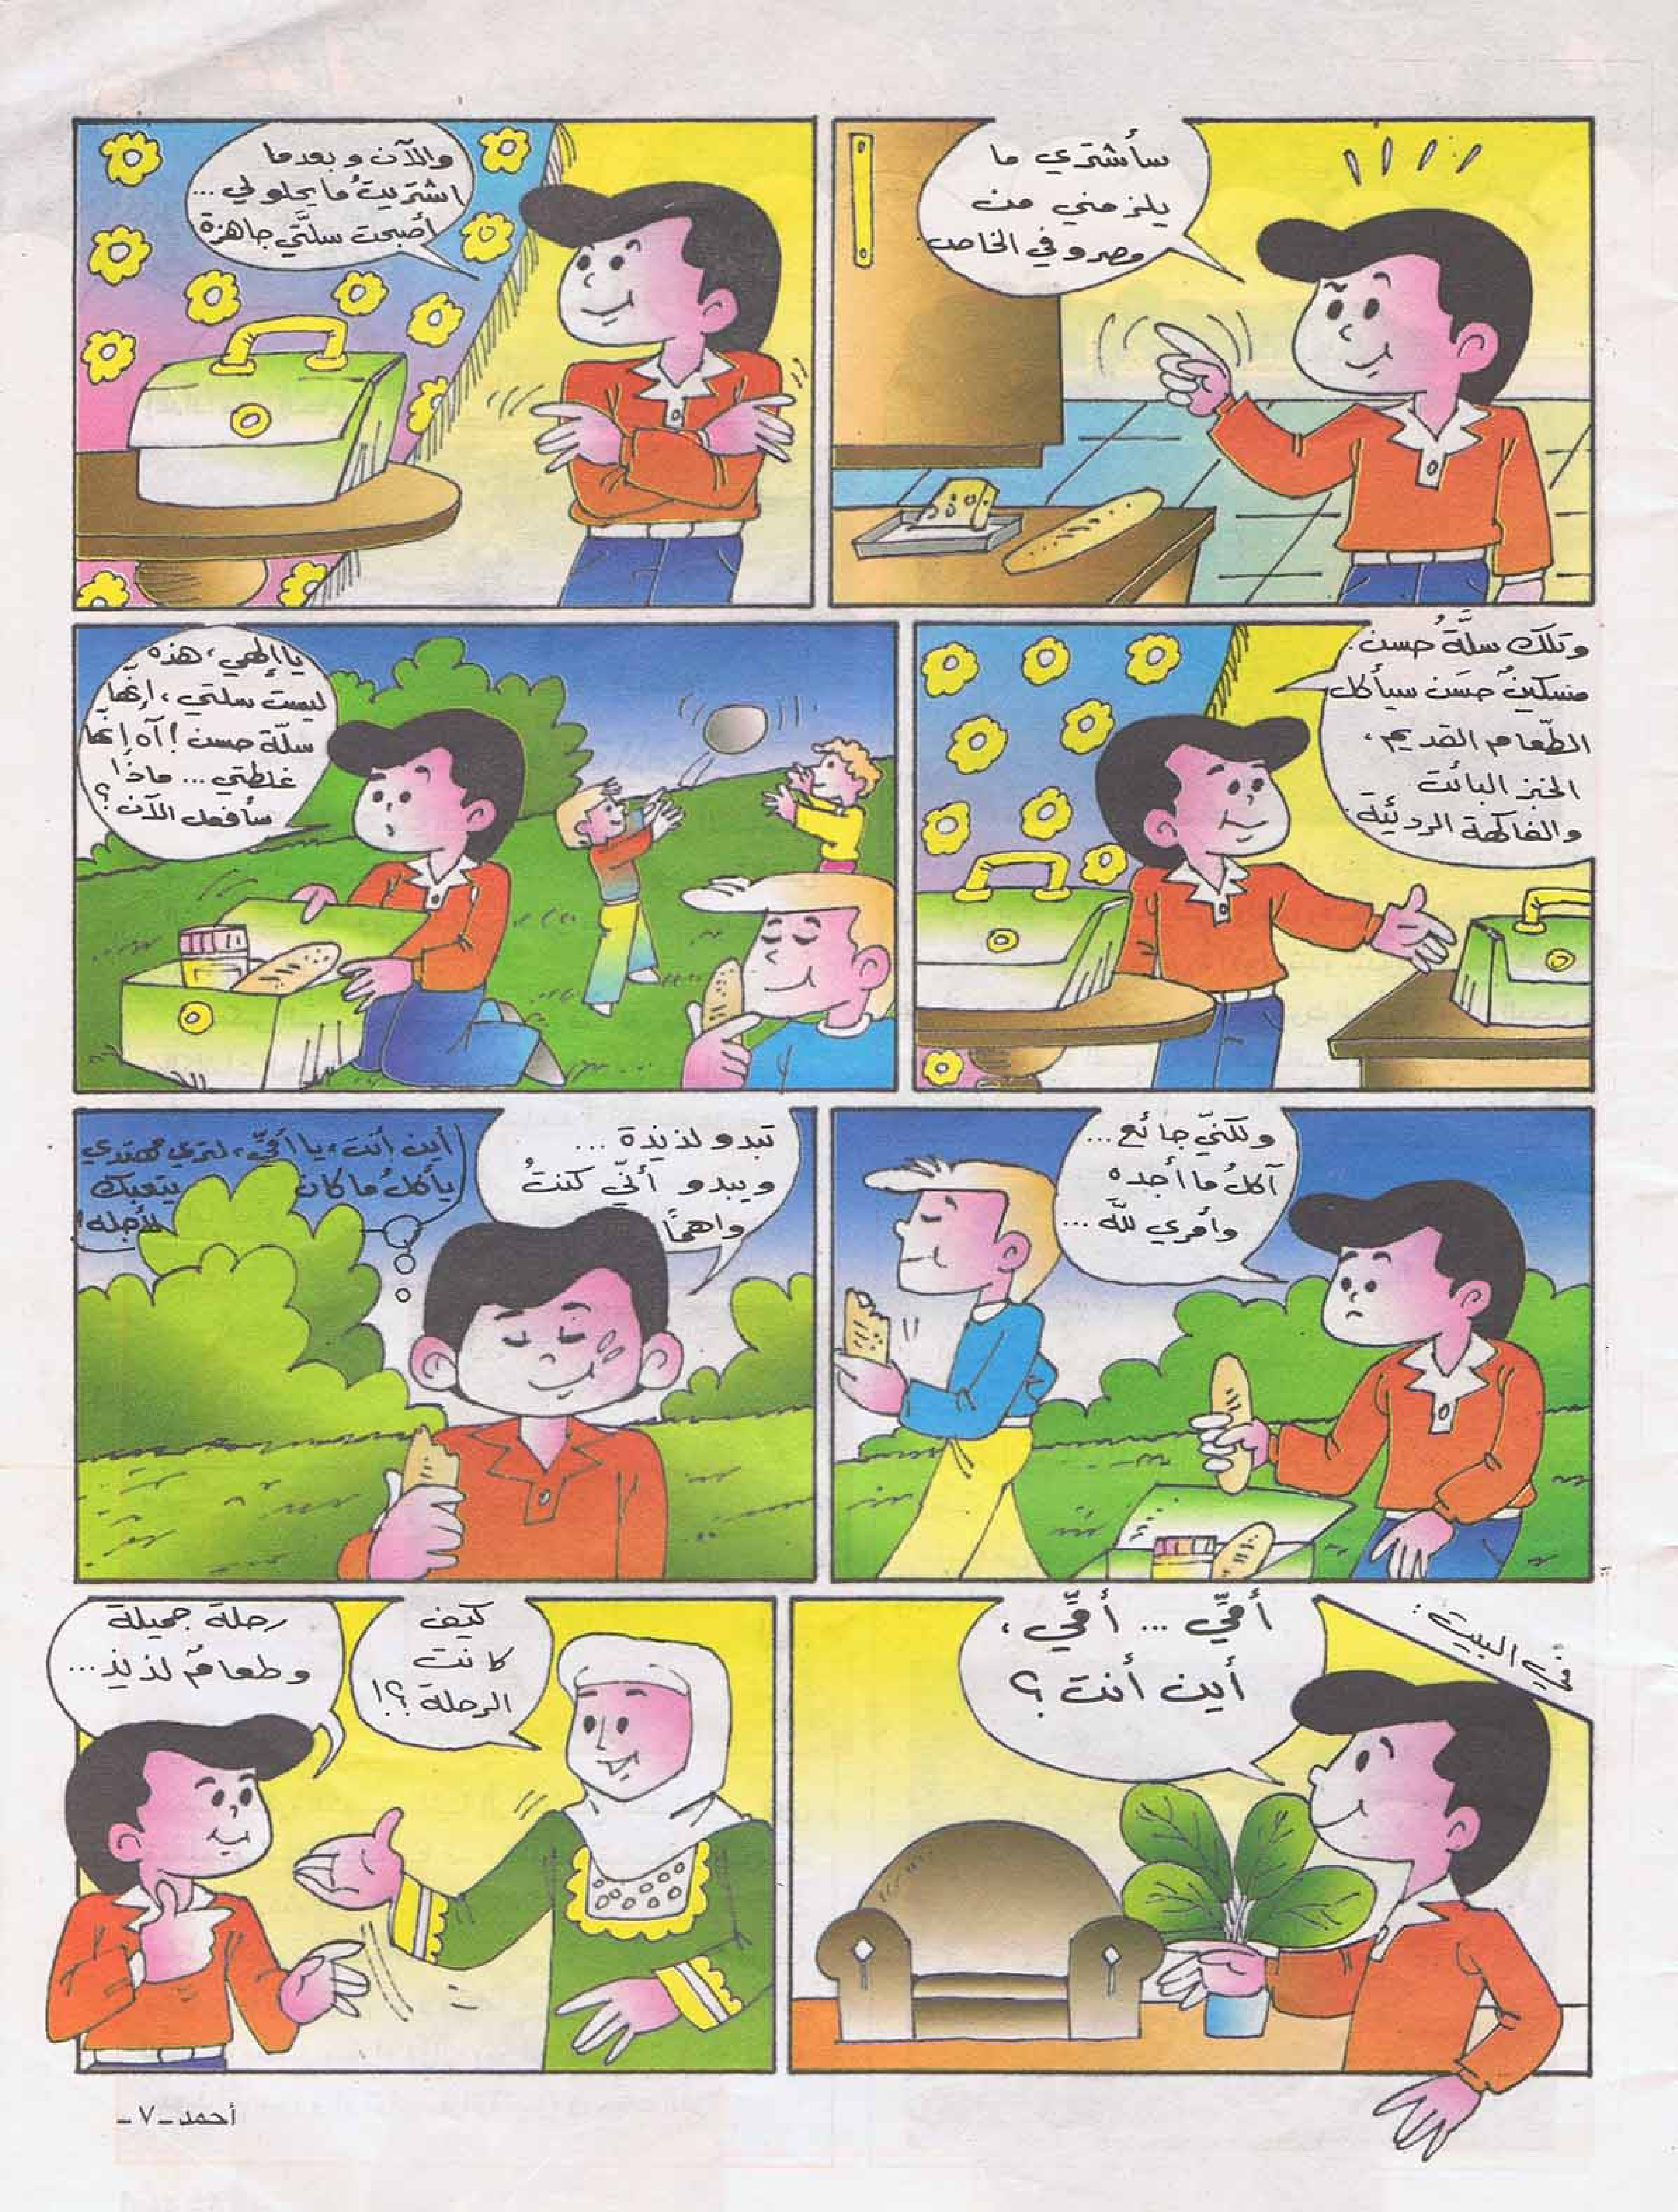 سأشتري ما
يلزمني من
مصروفي الخاص
والآن وبعدما
اشتريتُ ما يحلو لي ...
أصبحت سلتَّي جاهزة
وتلك سلَّةُ حسن.
مسكينٌ حسَن سيأكل
الطّعام القديم،
الخبز البائت
والفاكهة الرديئة.
يا إلهي، هذه
ليست سلتي، إنّها
سلّة حسن! آه إنها
غلطتي... ماذا
سأفعل الآن؟
ولكنّي جائع...
آكلُ ما أجده
وأمري للَّه ...
تبدو لذيذة ...
ويبدو أنّي كنتُ
واهمًا
أين أنتِ، يا أمّي، لتري مهتدي
يأكلُ ما كان يتعبك
لأجله!
في البيت:
أمّي ... أمّي،
أين أنت؟
كيف
كانت
الرحلة؟!
رحلة جميلة
وطعامٌ لذيذ...
أحمد - ٧ -